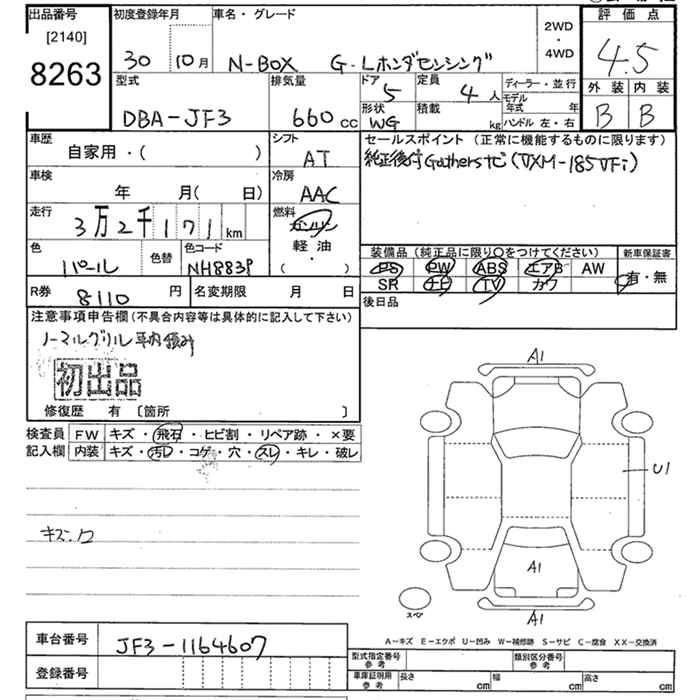 出品番号 初度登録年月 車名・グレード 2WD・4WD 評価点
[2140]
8263
30 10月 N-BOX G・Lホンダセンシング 4.5
型式 排気量 ドア 定員 ディーラー・並行 外装 内装
DBA-JF3 660cc 5 4人 モデル年式 年 B B
形状 積載 ハンドル 左・右
WG kg
車歴 シフト セールスポイント(正常に機能するものに限ります)
自家用・( ) AT 純正後付Gathersナビ(VXM-185VFi)
車検 冷房
年 月( 日) AAC
走行 燃料
3万2千171km ガソリン
軽油
( )
色 色替 色コード 装備品(純正品に限り○をつけてください) 新車保証書
パール NH883P PS PW ABS エアB AW 有・無
SR ナビ TV カワ
R券 8110円 名変期限 月 日 後日品
注意事項申告欄(不具合内容等は具体的に記入して下さい)
ノーマルグリル車内積み
初出品
修復歴 有 [箇所 ]
検査員 FW キズ・飛石・ヒビ割・リペア跡・×要
記入欄 内装 キズ・汚レ・コゲ・穴・スレ・キレ・破レ
A1
U1
キズ.ワ
A1
スペア
A1
A-キズ E-エクボ U-凹み W-補修跡 S-サビ C-腐食 XX-交換済
車台番号 JF3-1164607
型式指定番号 参考 類別区分番号 参考
登録番号
車庫証明用 参考 長さ cm 幅 cm 高さ cm